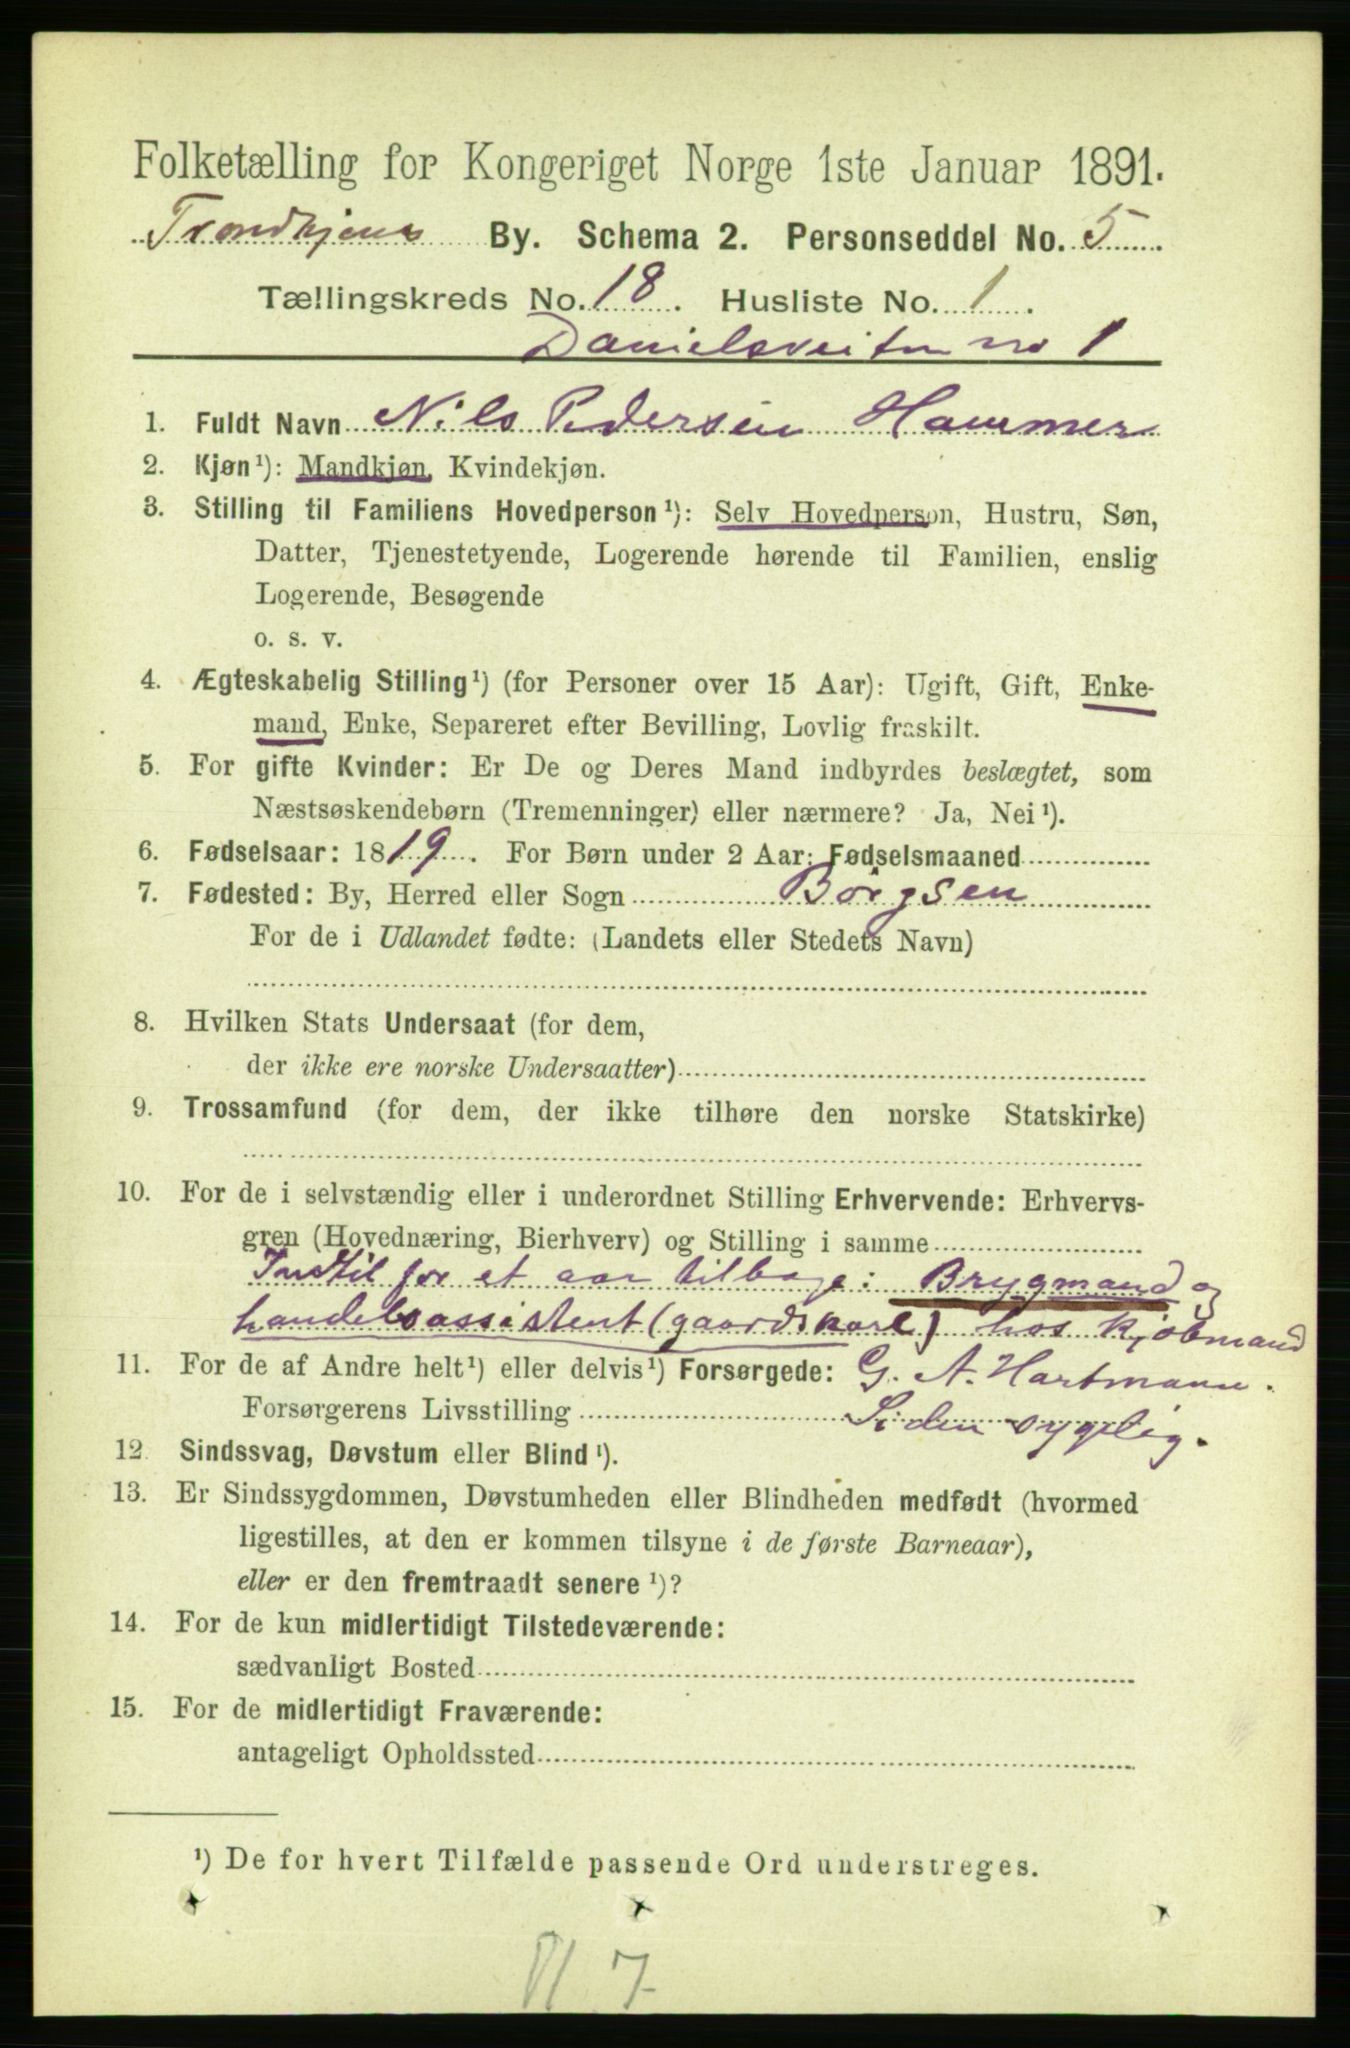 Folketælling for Kongeriget Norge 1ste Januar 1891.
Trondhjems By. Schema 2. Personseddel No. 5
Tællingskreds No. 18. Husliste No. 1.
Danielsveiten no 1
1. Fuldt Navn Nils Pedersen Hammer
2. Kjøn¹): Mandkjøn, Kvindekjøn.
3. Stilling til Familiens Hovedperson¹): Selv Hovedperson, Hustru, Søn,
Datter, Tjenestetyende, Logerende hørende til Familien, enslig
Logerende, Besøgende
o. s. v.
4. Ægteskabelig Stilling¹) (for Personer over 15 Aar): Ugift, Gift, Enke-
mand, Enke, Separeret efter Bevilling, Lovlig fraskilt.
5. For gifte Kvinder: Er De og Deres Mand indbyrdes beslægtet, som
Næstsøskendebørn (Tremenninger) eller nærmere? Ja, Nei¹).
6. Fødselsaar: 1819. For Børn under 2 Aar: Fødselsmaaned
7. Fødested: By, Herred eller Sogn Börgsen
For de i Udlandet fødte: (Landets eller Stedets Navn)
8. Hvilken Stats Undersaat (for dem,
der ikke ere norske Undersaatter)
9. Trossamfund (for dem, der ikke tilhøre den norske Statskirke)
10. For de i selvstændig eller i underordnet Stilling Erhvervende: Erhvervs-
gren (Hovednæring, Bierhverv) og Stilling i samme
Indtil for et aar tilbage: Brygmand og
handelsassistent (gaardskarl) hos kjöbmand
11. For de af Andre helt¹) eller delvis¹) Forsørgede: G. A. Hartmann.
Forsørgerens Livsstilling Siden sygelig.
12. Sindssvag, Døvstum eller Blind¹).
13. Er Sindssygdommen, Døvstumheden eller Blindheden medfødt (hvormed
ligestilles, at den er kommen tilsyne i de første Barneaar),
eller er den fremtraadt senere¹)?
14. For de kun midlertidigt Tilstedeværende:
sædvanligt Bosted
15. For de midlertidigt Fraværende:
antageligt Opholdssted
¹) De for hvert Tilfælde passende Ord understreges.
7